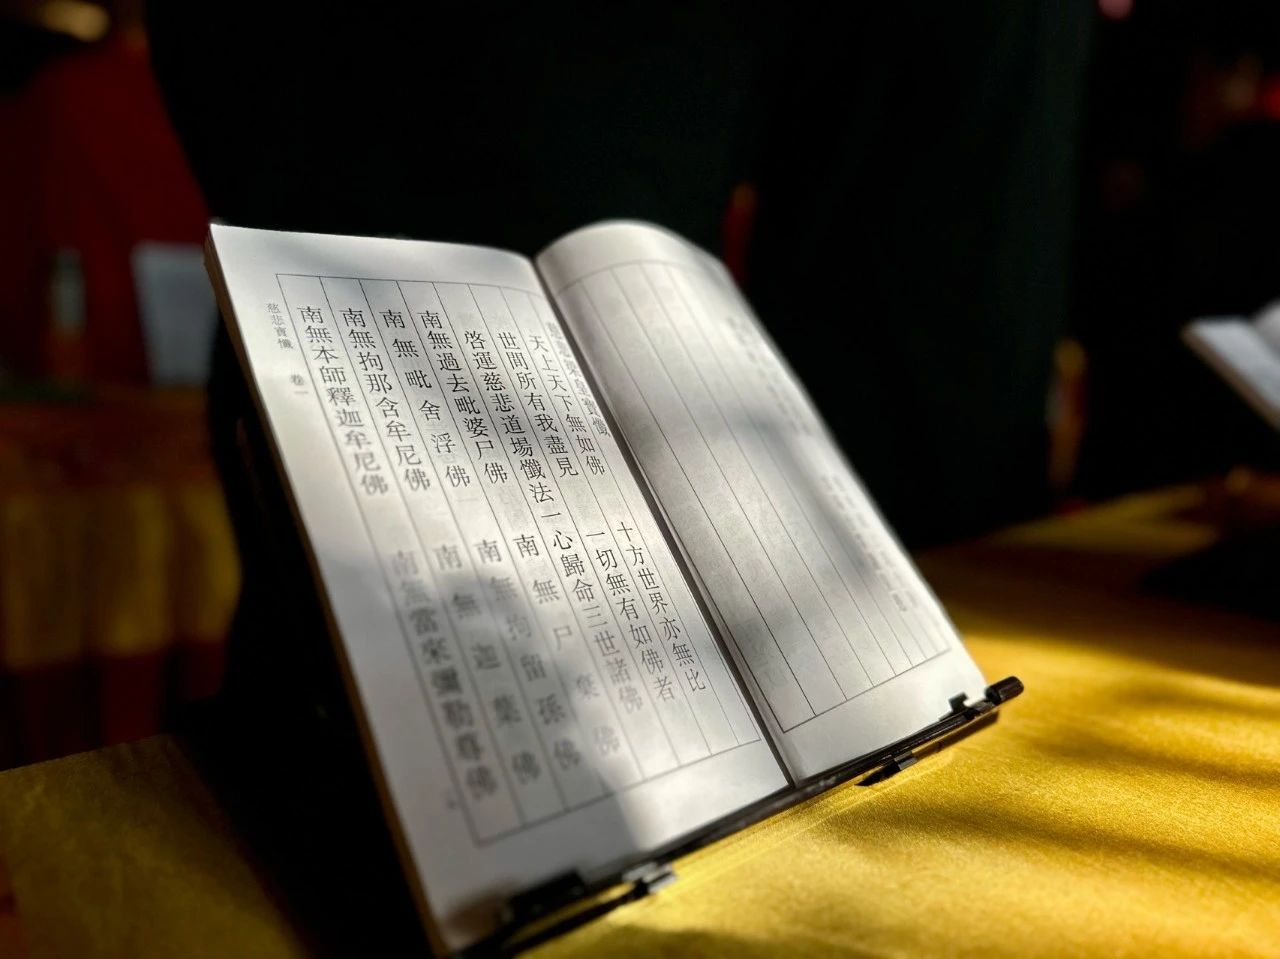 天上天下無如佛 十方世界亦無比
世間所有我盡見 一切無有如佛者
啓運慈悲道場懺法一心歸命三世諸佛
南無過去毗婆尸佛 南無尸棄佛
南無毗舍浮佛 南無拘留孫佛
南無拘那含牟尼佛 南無迦葉佛
南無本師釋迦牟尼佛 南無當來彌勒尊佛
慈悲寶懺 卷一